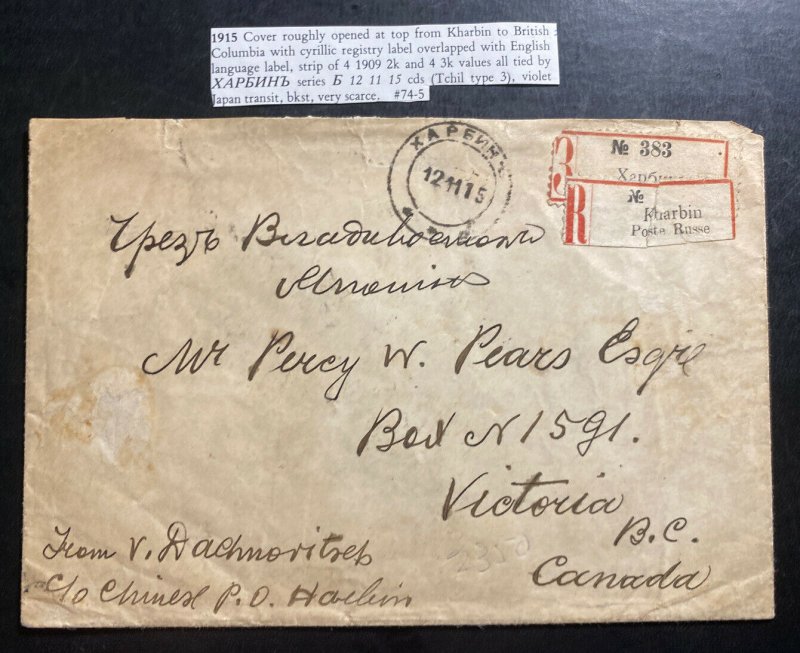 1915 Cover roughly opened at top from Kharbin to British
Columbia with cyrillic registry label overlapped with English
language label, strip of 4 1909 2k and 4 3k values all tied by
ХАРБИНЪ series Б 12 11 15 cds (Tchil type 3), violet
Japan transit, bkst, very scarce. #74-5
ХАРБИНЪ
12 11 15
№ 383
№
R
Kharbin
Poste Russe
Чрезъ Владивостокъ
Mr Percy W. Pears Esqre
Box N 1591.
Victoria
B.C.
Canada
From V.
C/o Chinese P.O. Harbin
2350